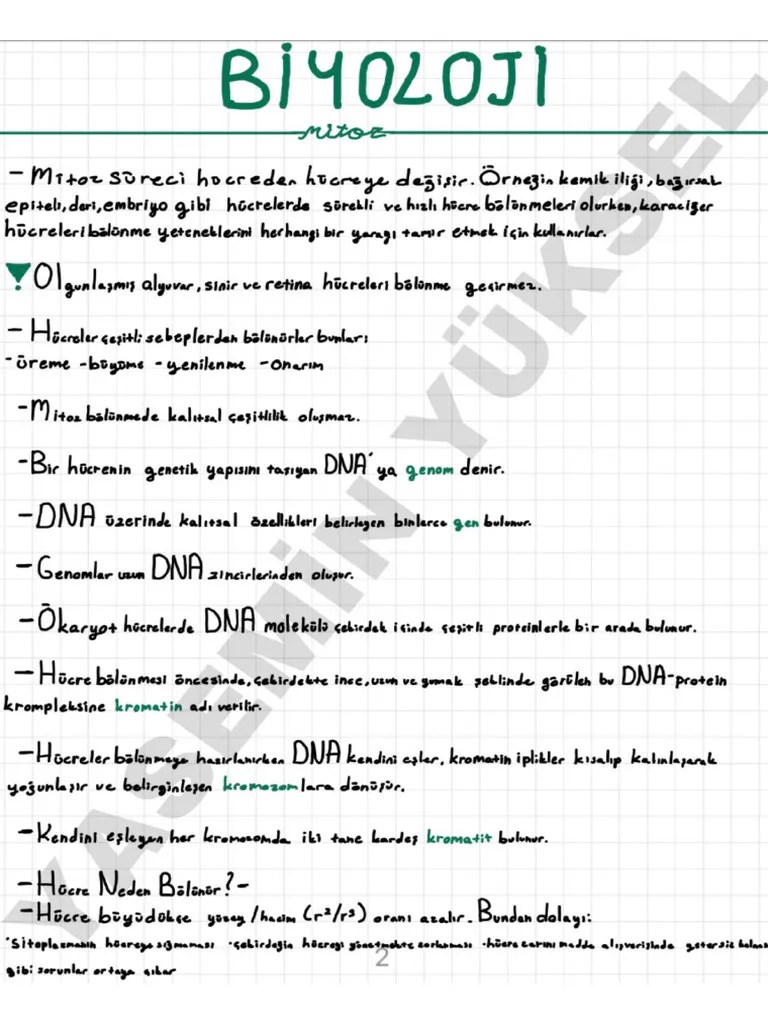 BİYOLOJİ
mitoz
- Mitoz süreci hücreden hücreye değişir. Örneğin kemik iliği, bağırsak
epiteli, deri, embriyo gibi hücrelerde sürekli ve hızlı hücre bölünmeleri olurken, karaciğer
hücreleri bölünme yeteneklerini herhangi bir yarayı tamir etmek için kullanırlar.
Olgunlaşmış alyuvar, sinir ve retina hücreleri bölünme geçirmez.
- Hücreler çeşitli sebeplerden bölünürler bunlar;
-üreme -büyüme -yenilenme -onarım
-Mitoz bölünmede kalıtsal çeşitlilik oluşmaz.
-Bir hücrenin genetik yapısını taşıyan DNA'ya genom denir.
-DNA üzerinde kalıtsal özellikleri belirleyen binlerce gen bulunur.
-Genomlar uzun DNA zincirlerinden oluşur.
-Ökaryot hücrelerde DNA molekülü çekirdek içinde çeşitli proteinlerle bir arada bulunur.
-Hücre bölünmesi öncesinde, çekirdekte ince, uzun ve yumak şeklinde görülen bu DNA-protein
krompleksine kromatin adı verilir.
-Hücreler bölünmeye hazırlanırken DNA kendini eşler, kromatin iplikler kısalıp kalınlaşarak
yoğunlaşır ve belirginleşen kromozomlara dönüşür.
-Kendini eşleyen her kromozomda iki tane kardeş kromatit bulunur.
-Hücre Neden Bölünür?-
-Hücre büyüdükçe yüzey/hacim (r²/r³) oranı azalır. Bundan dolayı:
·Sitoplazmanın hücreye sığmaması ·çekirdeğin hücreyi yönetmekte zorlanması ·hücre zarının madde alışverişinde yetersiz kalması
gibi sorunlar ortaya çıkar
2
YASEMİN YÜKSEL